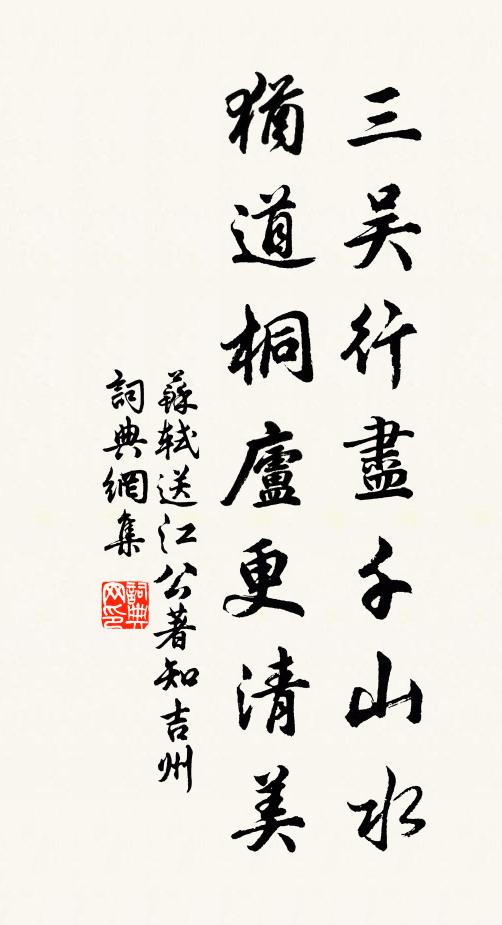 三吴行盡千山水
猶道桐廬更清美
蘇轼送江公著知吉州
詞典網集
詞典网印